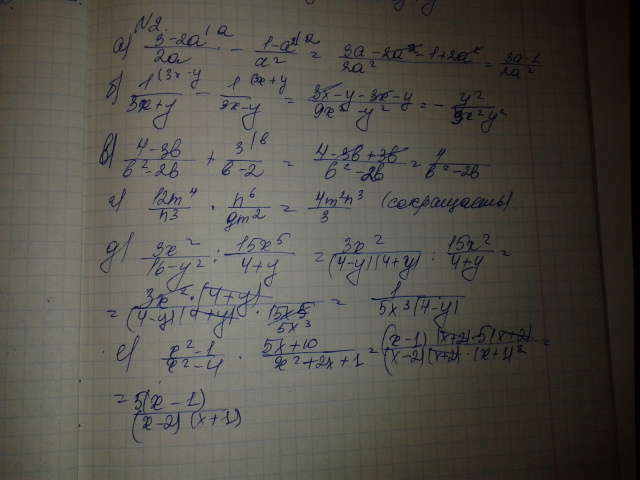 №2.
а) (3-2a)/(2a) - (1-a²)/(a²) = (3a-2a²-1+2a²)/(2a²) = (3a-1)/(2a²)
б) 1/(3x+y) - 1/(3x-y) = (3x-y-3x-y)/(9x²-y²) = - y²/(9x²y²)
в) (4-3в)/(в²-2в) + 3/(в-2) = (4-3в+3в)/(в²-2в) = 4/(в²-2в)
г) (12m⁴)/(n³) · (n⁶)/(9m²) = (4m²n³)/3 (сокращаешь)
д) (3x²)/(16-y²) : (15x⁵)/(4+y) = (3x²)/((4-y)(4+y)) : (15x²)/(4+y) =
= (3x²·(4+y))/((4-y)(4+y) · 15x⁵) 5x³ = 1/(5x³(4-y))
е) (x²-1)/(x²-4) · (5x+10)/(x²+2x+1) = ((x-1)(x+2)·5(x+2))/((x-2)(x+2)·(x+1)²) =
= 5(x-1)/((x-2)(x+1))